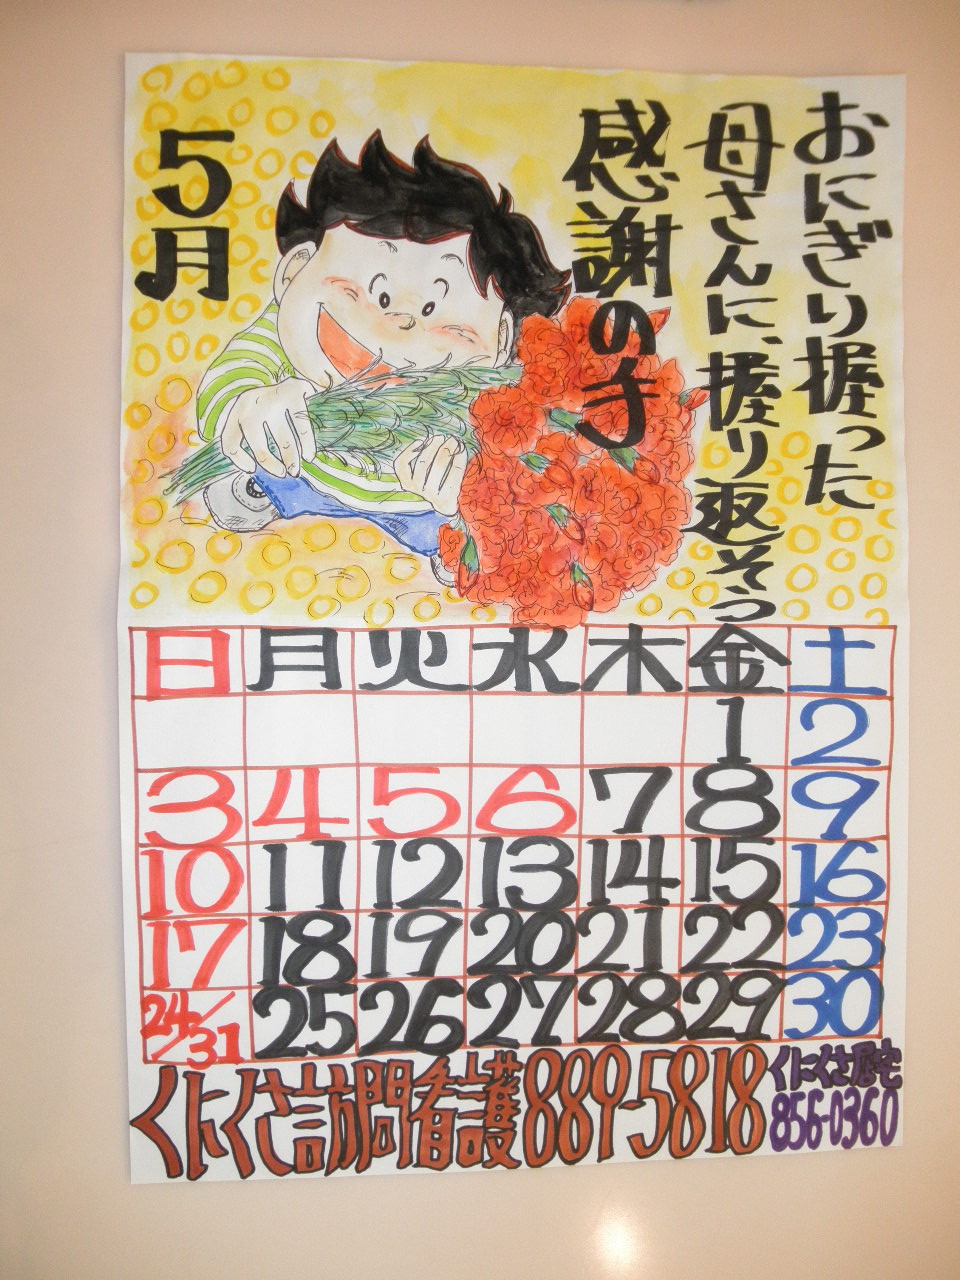 おにぎり握った
母さんに、握り返そう
感謝の手
5月
日 月 火 水 木 金 土
1 2
3 4 5 6 7 8 9
10 11 12 13 14 15 16
17 18 19 20 21 22 23
24/31 25 26 27 28 29 30
くにくさ訪問看護 889-5818
くにくさ居宅
856-0360